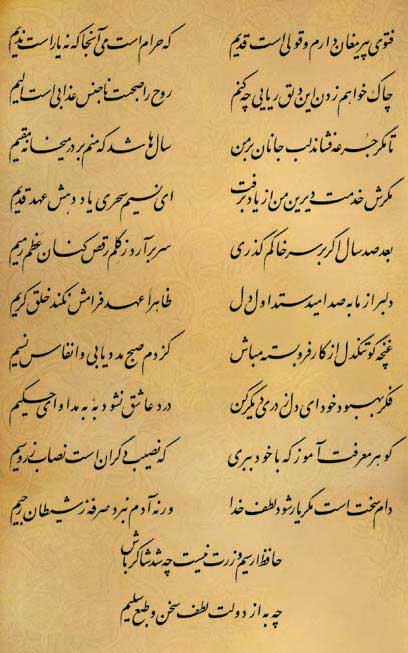 فتوی پیر مغان دارم و قولی است قدیم که حرام است می آنجا که نه یار است ندیم
چاک خواهم زدن این دلق ریایی چه کنم روح را صحبت ناجنس عذابی است الیم
تا مگر جرعه فشاند لب جانان بر من سال‌ها شد که منم بر در میخانه مقیم
مگرش خدمت دیرین من از یاد برفت ای نسیم سحری یاد دهش عهد قدیم
بعد صد سال اگر بر سر خاکم گذری سر برآرد ز گلم رقص کنان عظم رمیم
دلبر از ما به صد امید ستد اول دل ظاهرا عهد فرامش نکند خلق کریم
غنچه گو تنگ دل از کار فروبسته مباش کز دم صبح مدد یابی و انفاس نسیم
فکر بهبود خود ای دل ز دری دیگر کن درد عاشق نشود به به مداوای حکیم
گوهر معرفت آموز که با خود ببری که نصیب دگران است نصاب زر و سیم
دام سخت است مگر یار شود لطف خدا ور نه آدم نبرد صرفه ز شیطان رجیم
حافظ ار سیم و زرت نیست چه شد شاکر باش
چه به از دولت لطف سخن و طبع سلیم